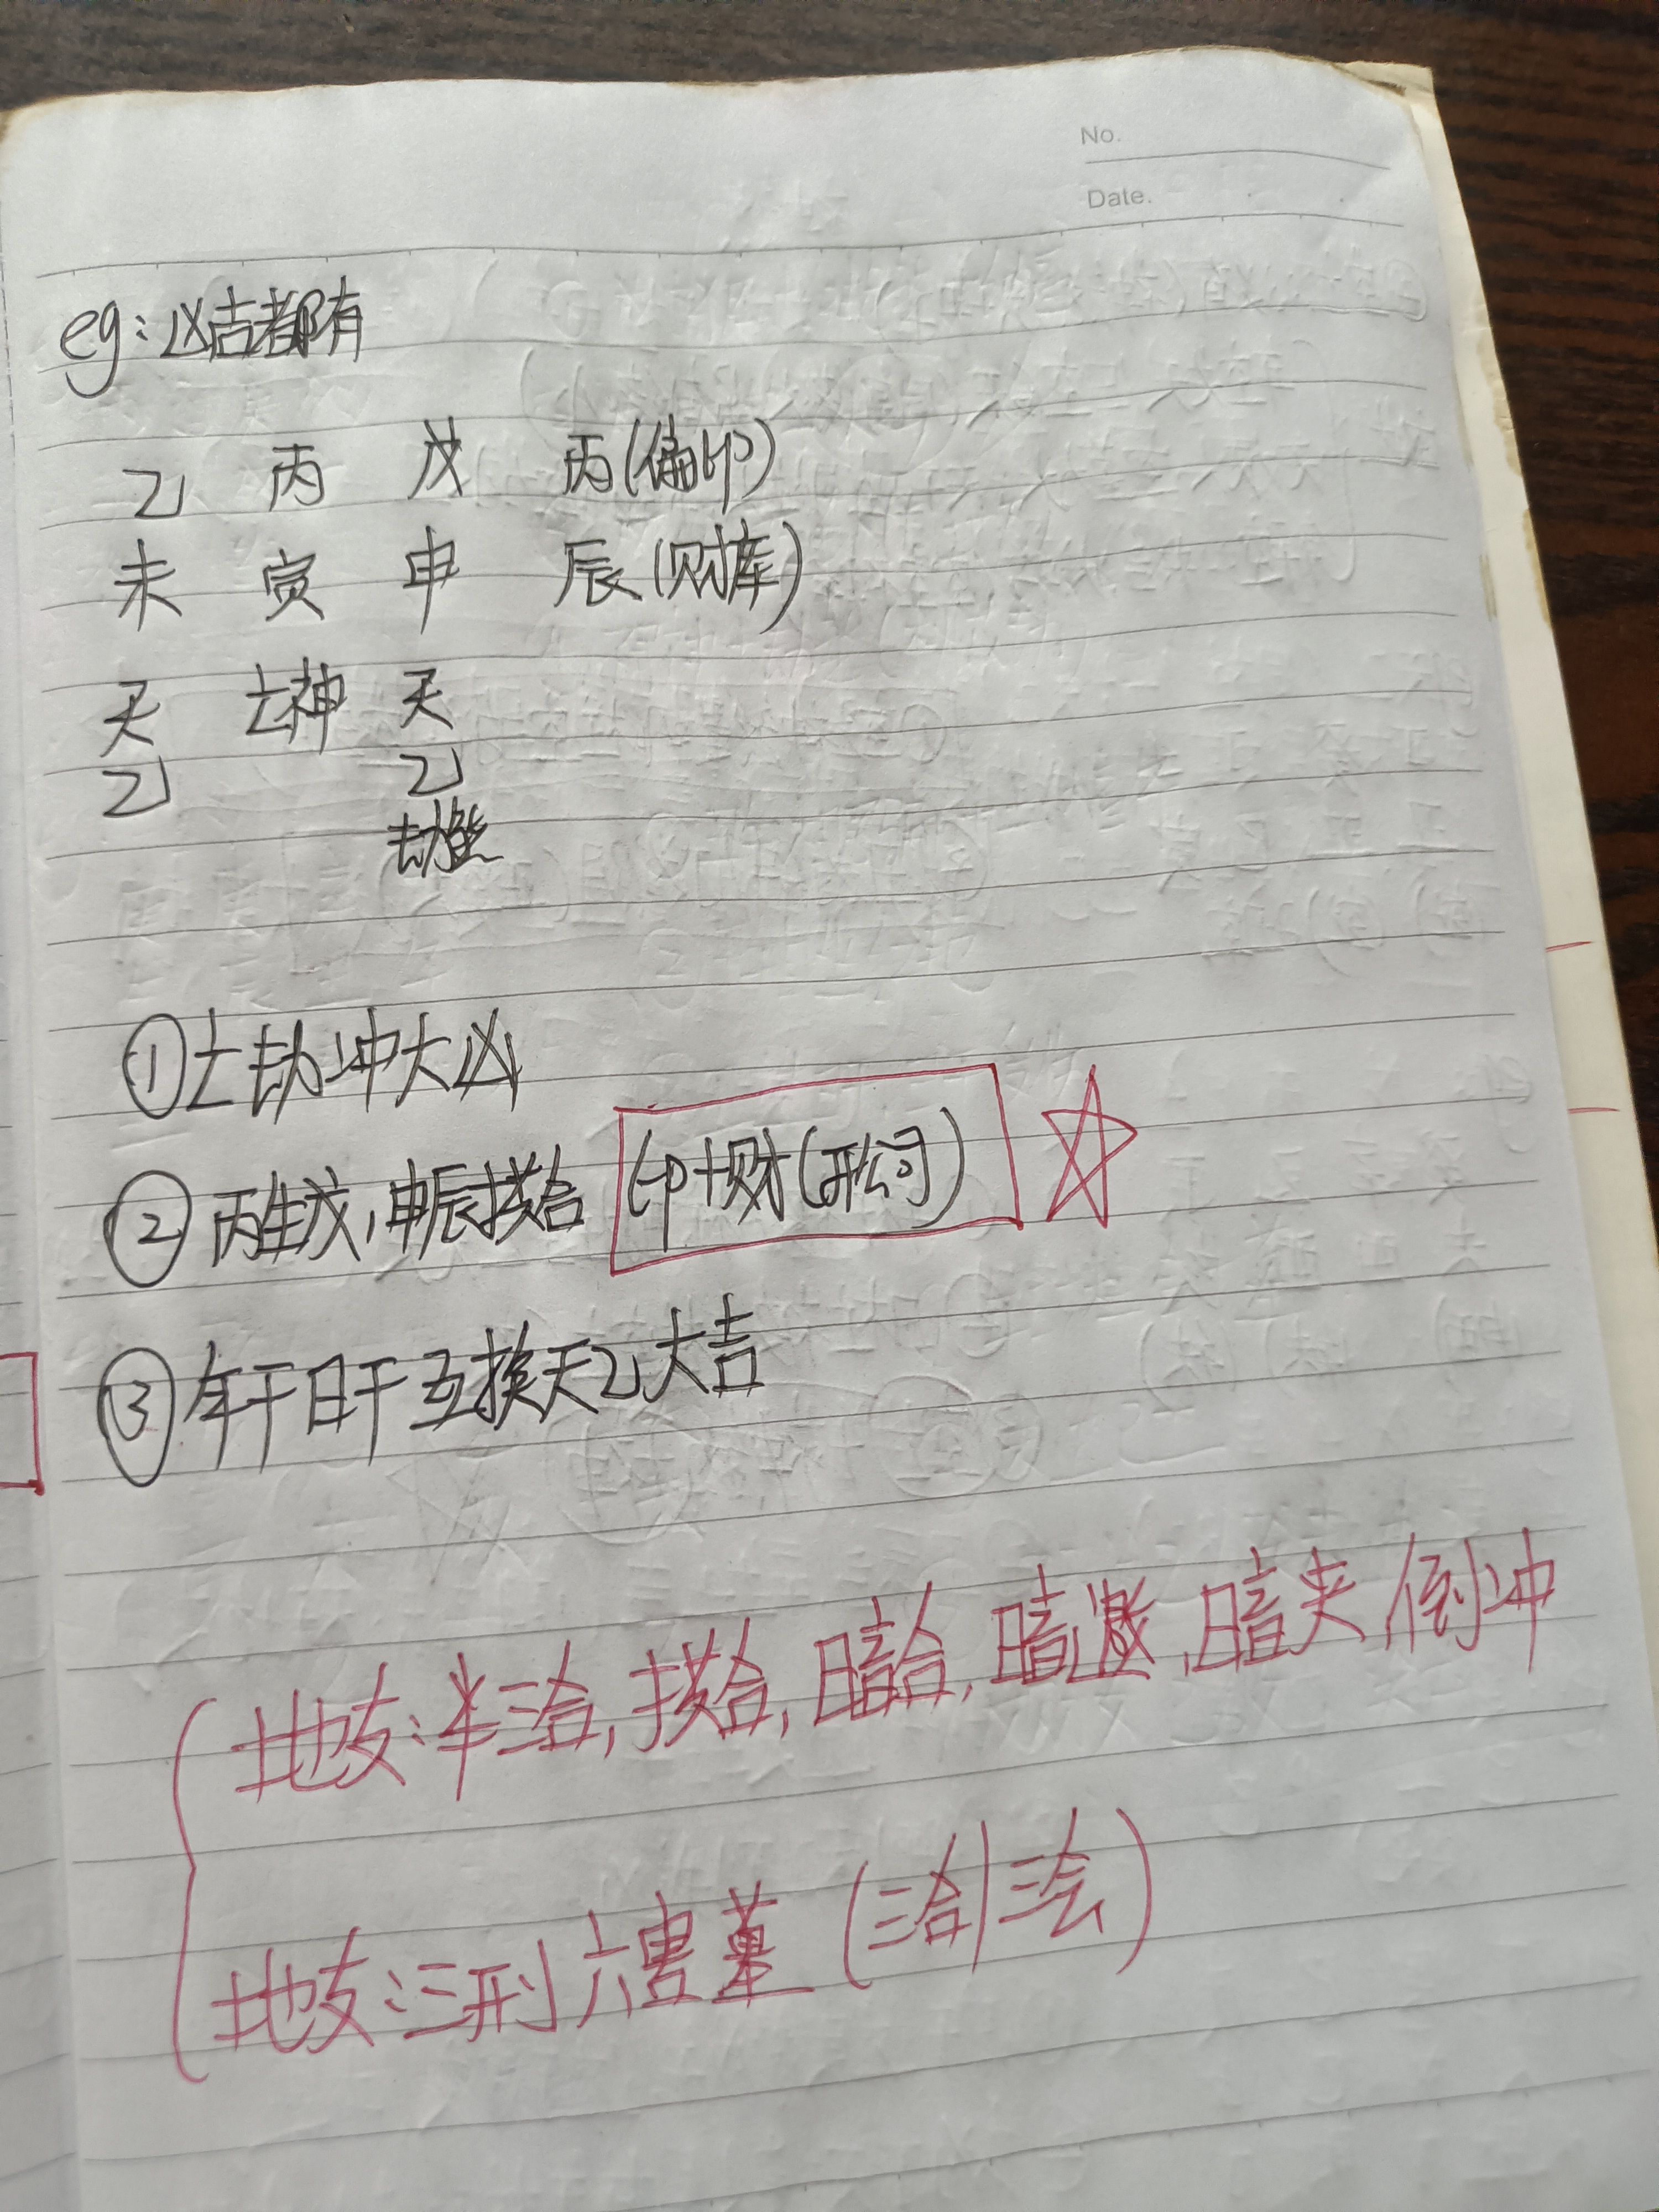 No.
Date.
eg：凶吉都有
乙 丙 戊 丙(偏印)
未 寅 申 辰(财库)
天 亡神 天
乙 乙
劫煞
①亡劫冲大凶
②丙生戊，申辰拱合 (印+财(开公司)
③年干日干互换天乙大吉
地支：半三合，拱合，暗合，暗邀，暗夹，倒冲
地支：三刑六害墓(三合|三会)